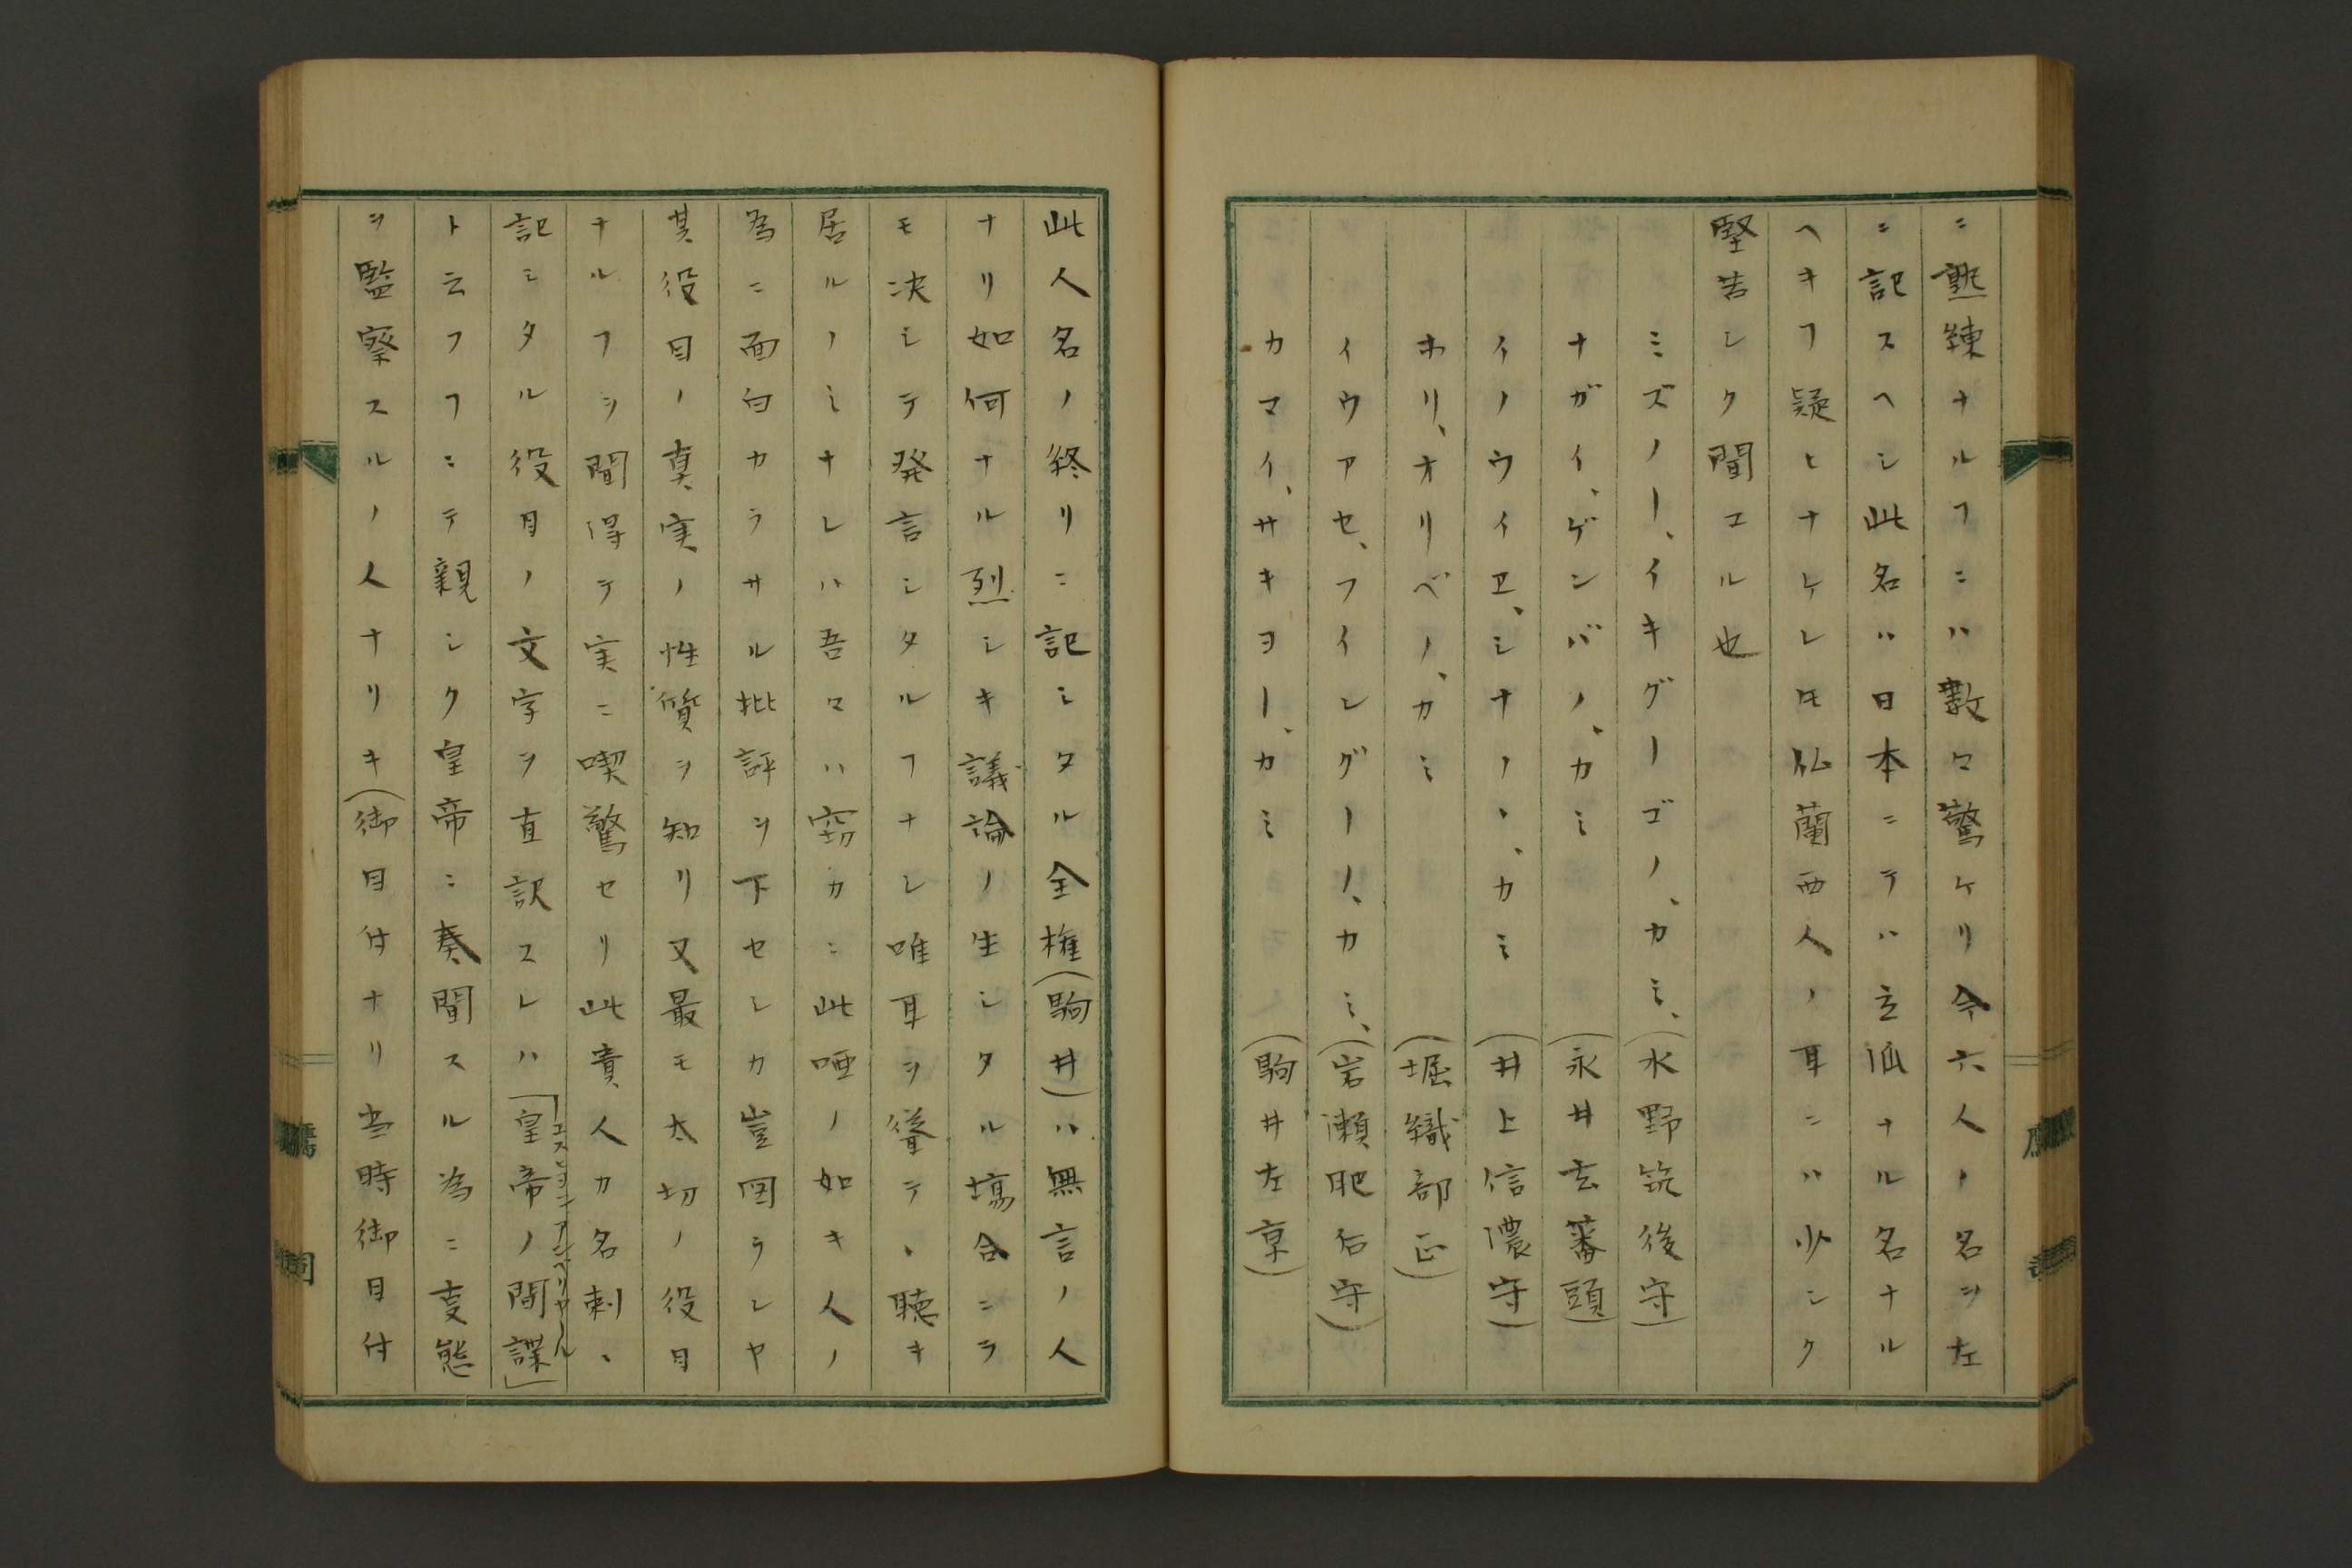 ニ熟練ナルヿニハ数々驚ケリ今六人ノ名ヲ左
ニ記スヘシ此名ハ日本ニテハ立派ナル名ナル
ヘキヿ疑ヒナケレ𪜈仏蘭西人ノ耳ニハ少シク
堅苦シク聞エル也
ミズノー、イキグーゴノ、カミ、(水野筑後守)
ナガイ、ゲンバノ、カミ(永井玄蕃頭)
イノウイヱ、シナノ、、カミ(井上信濃守)
ホリ、オリベノ、カミ(堀織部正)
イウアセ、フインクーノ、カミ、(岩瀬肥后守)
カマイ、サキヨー、カミ(駒井左京)
此人名ノ終リニ記シタル全権(駒井)ハ無言ノ人
ナリ如何ナル烈シキ議論ノ生シタル塲合ニテ
モ决シテ発言シタルヿナシ唯耳ヲ聳テ、聴キ
居ルノミナレハ吾々ハ窃カニ此唖ノ如キ人ノ
為ニ面白カラサル批評ヲ下セシカ豈図ランヤ
其役目ノ真実ノ性質ヲ知リ又最モ太切ノ役目
ナルヿヲ聞得テ実ニ喫驚セリ此貴人カ名刺、
記シタル役目ノ文字ヲ直訳スレハ「皇帝ノ間諜」
エスピヨンアンペリヤール
ト云フヿニテ親シク皇帝ニ奏聞スル為ニ変態
ヲ監察スルノ人ナリキ(御目付ナリ当時御目付